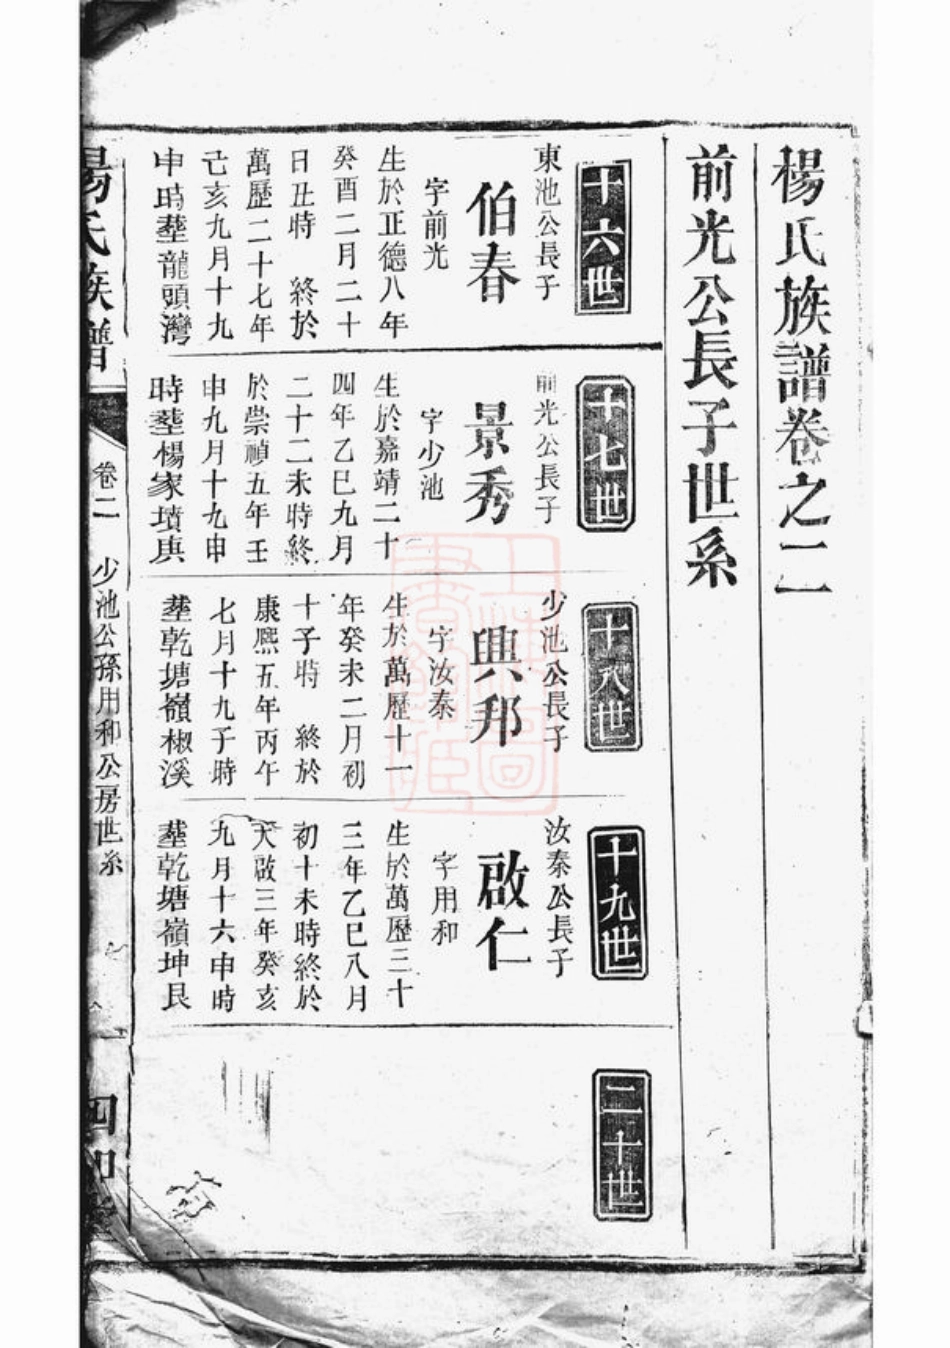 楊氏族譜卷之二
前光公長子世系
十六世
東池公長子
伯春
字前光
生於正德八年
癸酉二月二十
日丑時 終於
萬歷二十七年
己亥九月十九
申時塟龍頭灣
十七世
前光公長子
景秀
字少池
生於嘉靖二十
四年乙巳九月
二十二未時終
於崇禎五年壬
申九月十九申
時塟楊家墳
十八世
少池公長子
興邦
字汝秦
生於萬歷十一
年癸未二月初
十子時 終於
康熈五年丙午
七月十九子時
塟乾塘嶺椒溪
十九世
汝秦公長子
啟仁
字用和
生於萬歷三十
三年乙巳八月
初十未時終於
天啟三年癸亥
九月十六申時
塟乾塘嶺坤艮
二十世
楊氏族譜
卷二
少池公孫用和公房世系
四知堂